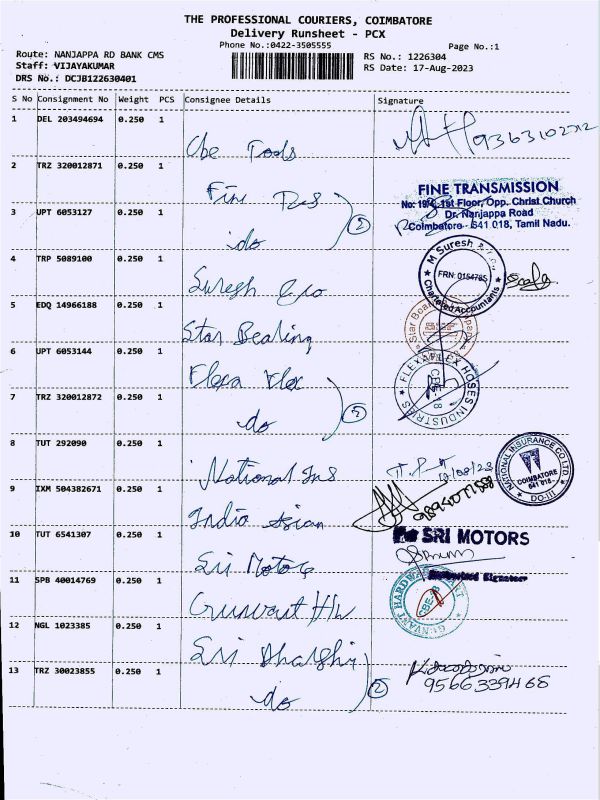 THE PROFESSIONAL COURIERS, COIMBATORE
Delivery Runsheet - PCX
Phone No.:0422-3505555
Page No.:1
Route: NANJAPPA RD BANK CMS
Staff: VIJAYAKUMAR
DRS No.: DCJB122630401
RS No.: 1226304
RS Date: 17-Aug-2023
S No Consignment No Weight PCS Consignee Details Signature
1 DEL 203494694 0.250 1 Cbe Tools 9363102712
2 TRZ 320012871 0.250 1 Fine
FINE TRANSMISSION
No: 19/4, 1st Floor, Opp. Christ Church
Dr. Nanjappa Road
Coimbatore - 641 018, Tamil Nadu.
3 UPT 6053127 0.250 1 do 2
4 TRP 5089100 0.250 1 Suresh & co
M Suresh & Co
FRN: 015478S
Chartered Accountants
5 EDQ 14966188 0.250 1 Star Bearing
Star
6 UPT 6053144 0.250 1 Flexa Flex
FLEXAFLEX HOSES INDUSTRIES
CBE-18
7 TRZ 320012872 0.250 1 do 2
8 TUT 292090 0.250 1 National Ins
17/08/23
NATIONAL INSURANCE CO LTD.
COIMBATORE
641 018.
DO-III
9 IXM 504382671 0.250 1 India Asian
10 TUT 6541307 0.250 1 Sri Motors
SRI MOTORS
Authorised Signatory
11 SPB 40014769 0.250 1 Gunvant Hw
GUNVANT HARDWARE MART
CBE-18
12 NGL 1023385 0.250 1 Sri
13 TRZ 30023855 0.250 1 do 2
9566339468